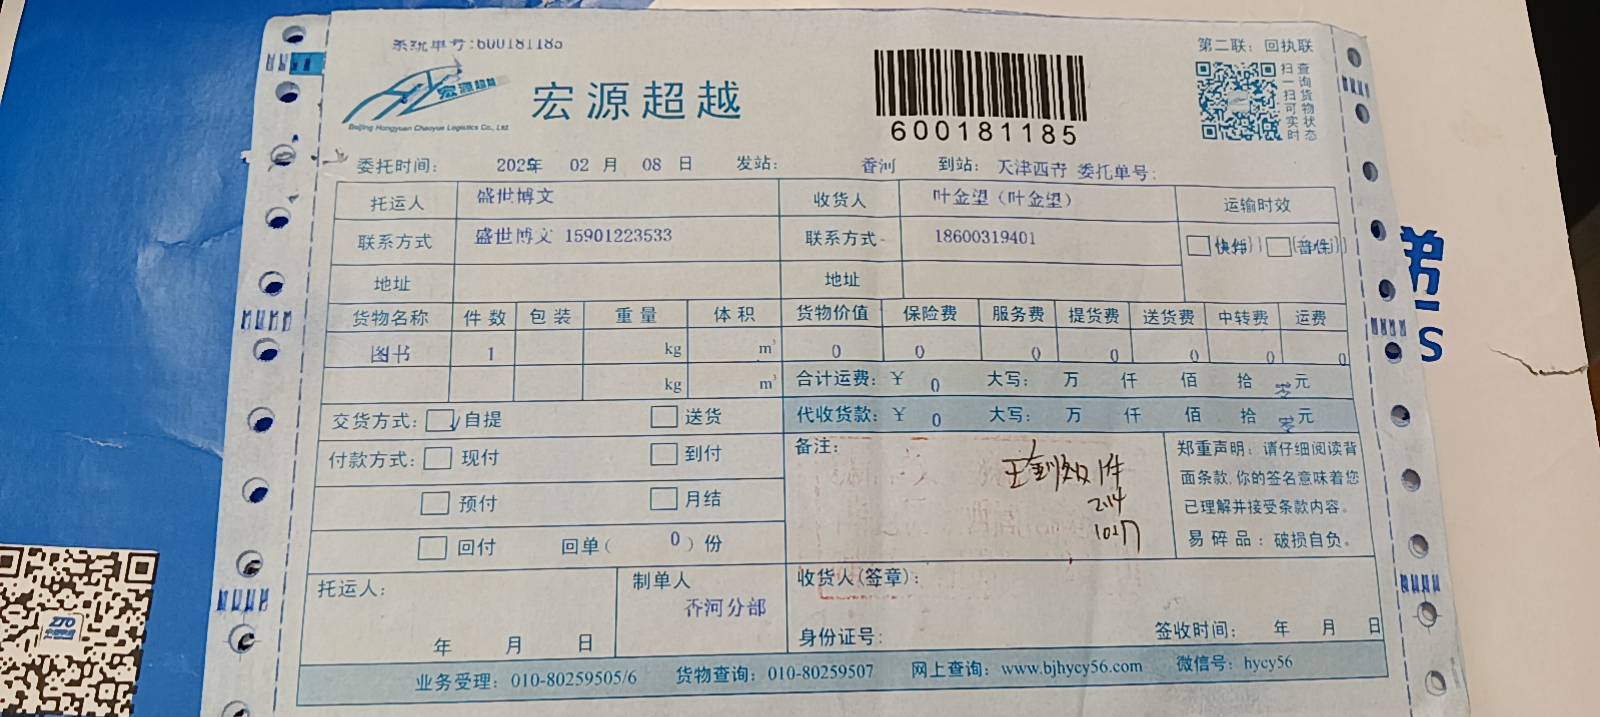 系统单号:600181185
第二联：回执联
宏源超越
Beijing Hongyuan Chaoyue Logistics Co., Ltd
宏源超越
600181185
扫一扫可实时
查询货物状态
委托时间： 年 02 月 08 日 发站： 香河 到站： 天津西青 委托单号：
托运人 盛世博文 收货人 叶金望（叶金望） 运输时效
联系方式 盛世博文 15901223533 联系方式 18600319401
地址 地址
货物名称 件数 包装 重量 体积 货物价值 保险费 服务费 提货费 送货费 中转费 运费
图书 1 kg m³ 0 0 0 0 0 0 0
kg m³ 合计运费：￥ 0 大写： 万 仟 佰 拾 零元
交货方式： 自提 送货 代收货款：￥ 0 大写： 万 仟 佰 拾 零元
付款方式： 现付 到付
预付 月结
回付 回单（ 0 ）份
备注：
1件
郑重声明：请仔细阅读背
面条款,你的签名意味着您
已理解并接受条款内容。
易碎品：破损自负。
托运人： 制单人 收货人(签章)：
香河分部
年 月 日 身份证号： 签收时间： 年 月 日
业务受理：010-80259505/6 货物查询：010-80259507 网上查询：www.bjhycy56.com 微信号：hycy56
ZTO
S